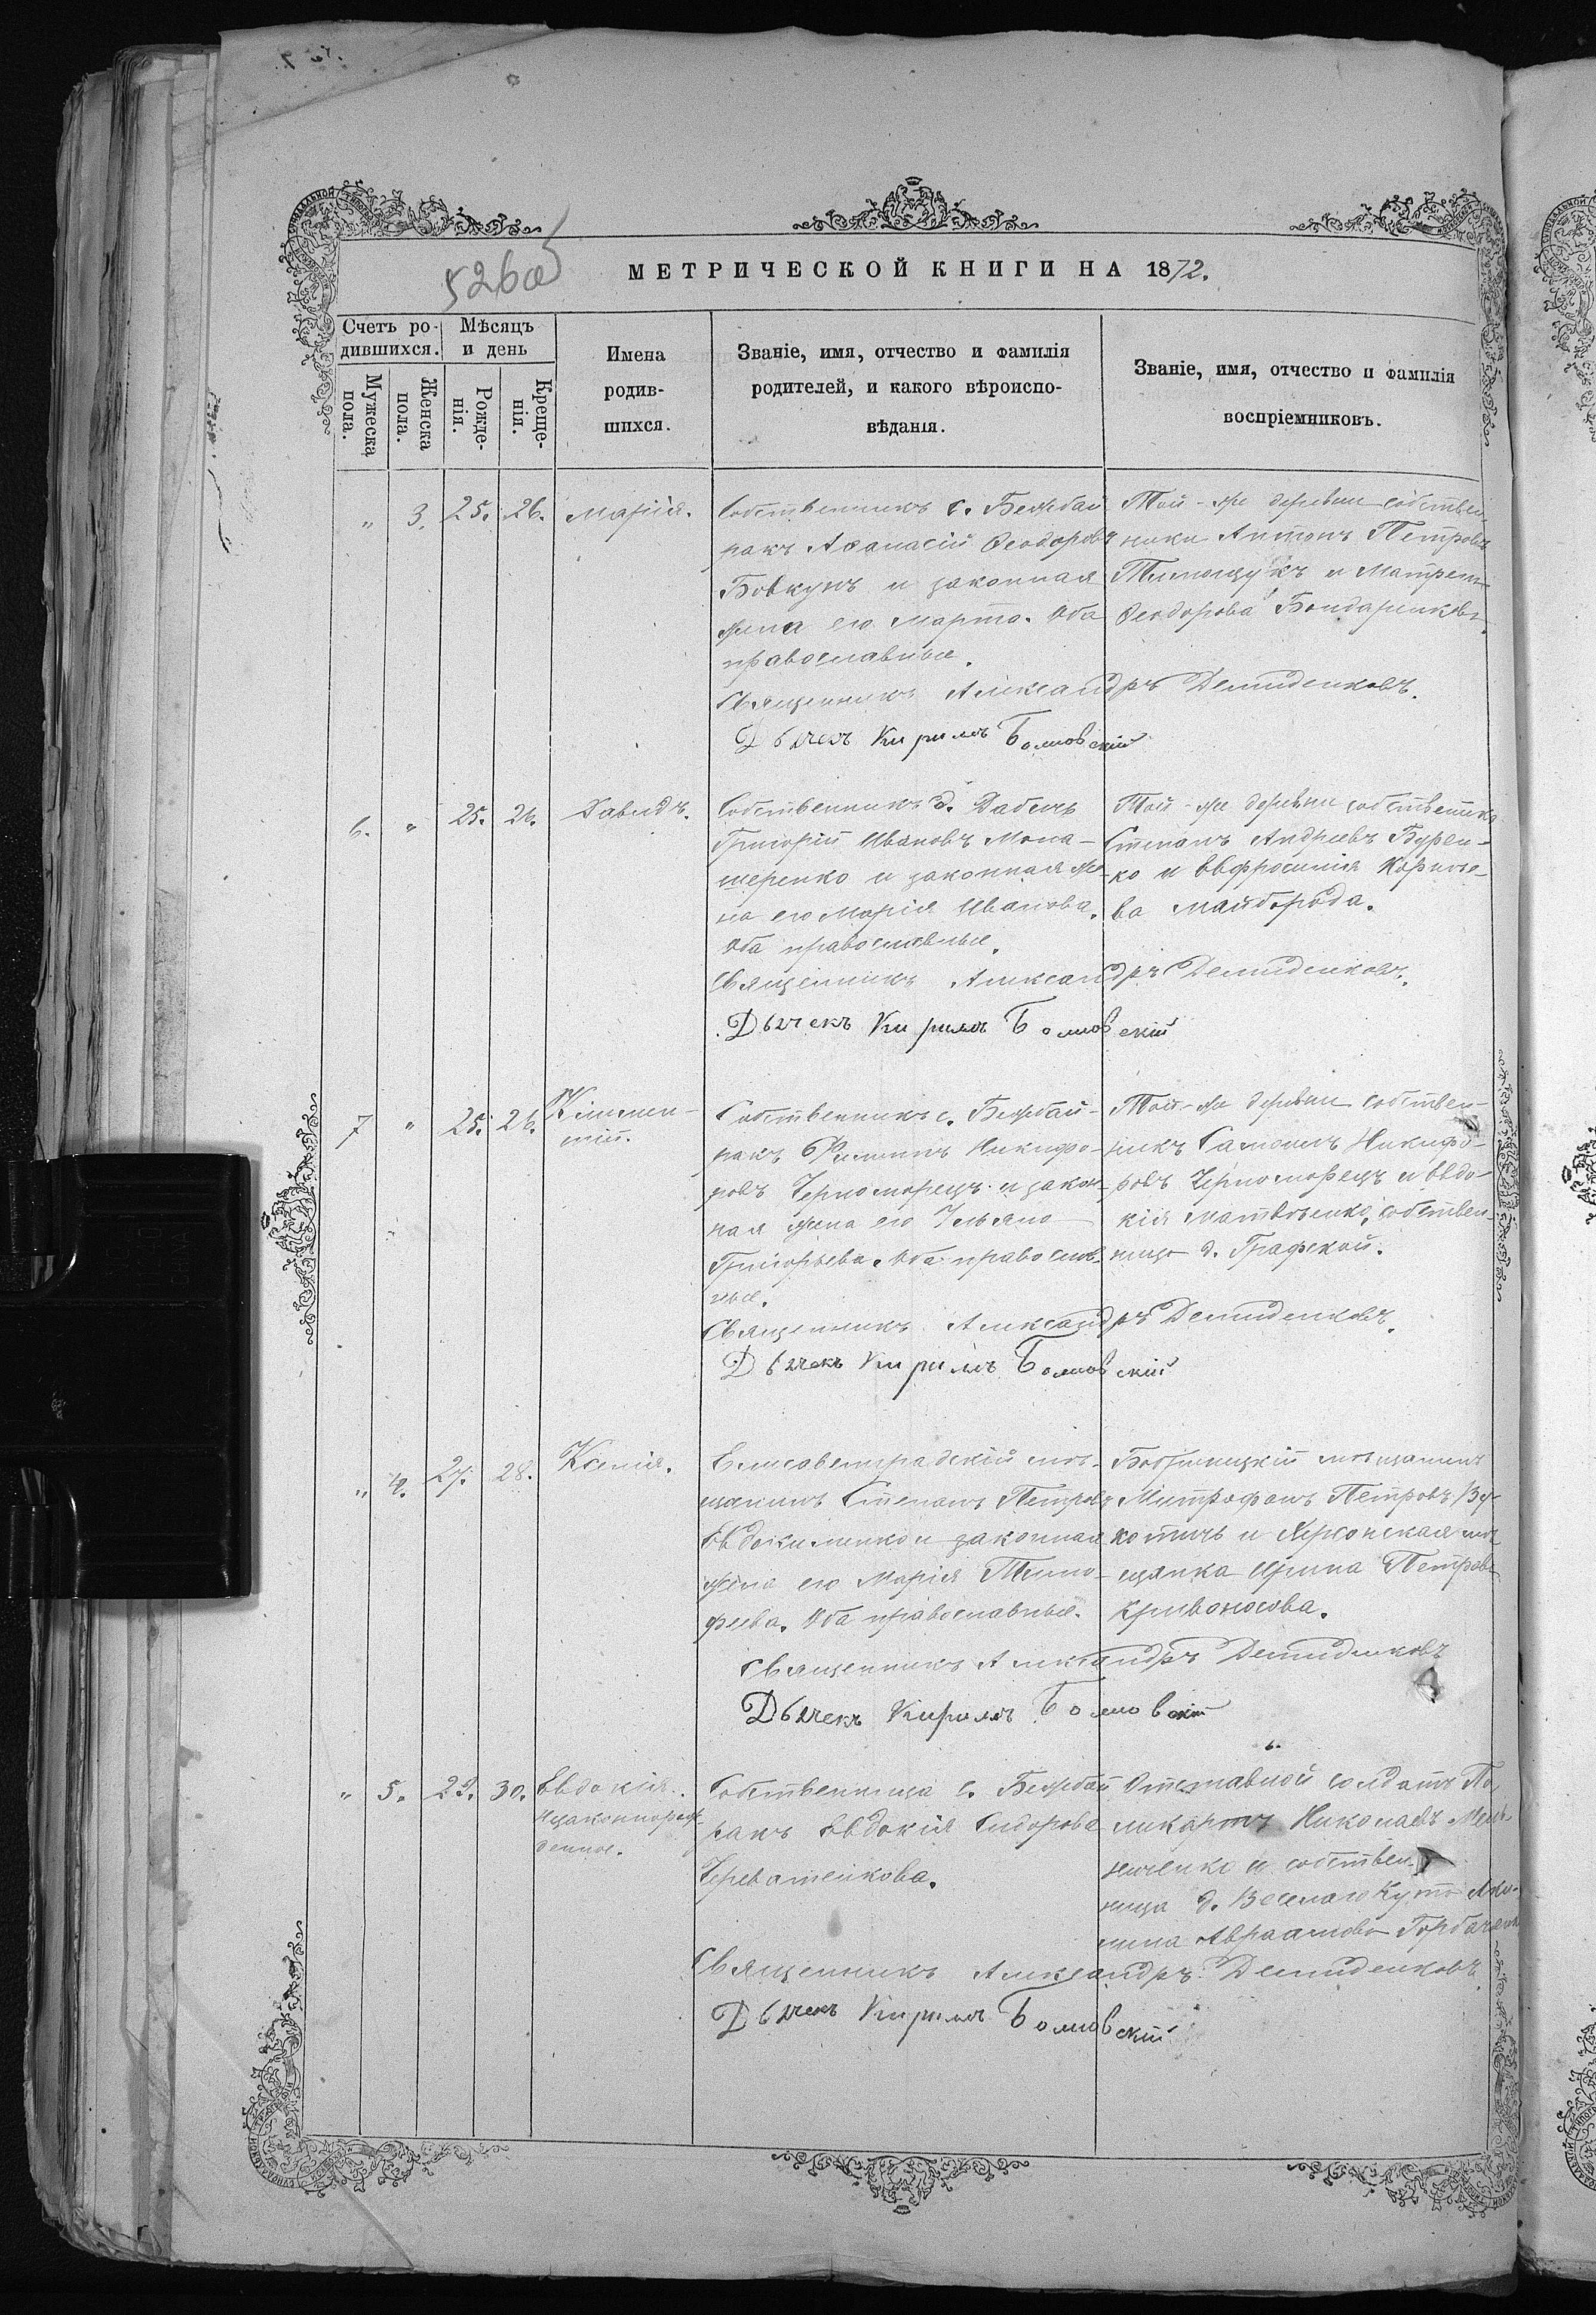 526об
МЕТРИЧЕСКОЙ КНИГИ НА 1872.
Счетъ ро-
дившихся.
Мѣсяцъ
и день
Мужеска
пола.
Женска
пола.
Рожде-
нія.
Креще-
нія.
Имена
родив-
шихся.
Званіе, имя, отчество и фамилія
родителей, и какого вѣроиспо-
вѣданія.
Званіе, имя, отчество и фамилія
воспріемниковъ.
" 3. 25. 26. Марія.
Собственникъ с. Бежбай
ракъ Афанасій Феодоровъ
Бовкунъ и законная
жена его Марта. Оба
православные.
Той-же деревни собствен
ники Антонъ Петровъ
Тимощукъ и Матрена
Феодорова Бондаренкова.
Священникъ Александръ Демиденковъ.
Дьячекъ Кирилъ
6. " 25. 26. Давидъ.
Собственникъ д.
Григорій Ивановъ Мона-
шеренко и законная же-
на его Марія Иванова.
Оба православные.
Той-же деревни собственника
Степанъ Андреевъ Бурен-
ко и Евфросинія Корнье-
ва Майборода.
Священникъ Александръ Демиденковъ.
Дьячекъ Кирилъ
7 " 25. 26. Климен-
тій.
Собственникъ с. Бежбай-
ракъ Филиппъ Никифо-
ровъ Черноморецъ и закон-
ная жена его Ульяна
Григорьева. Оба православ-
ные.
Той-же деревни собствен-
никъ Самоилъ Никифо-
ровъ Черноморецъ и Евдо-
кія Матвѣенко, собствен-
ница д. Графской.
Священникъ Александръ Демиденковъ.
Дьячекъ Кирилъ
" 4. 27. 28. Ксенія.
Елисаветградскій мѣ-
щанинъ Степанъ Петровъ
Евдокименко и законная
жена его Марія Тимо-
феева. Оба православные.
Бобринецкій мѣщанинъ
Митрофанъ Петровъ
и Херсонская мѣ
щанка Ирина Петрова
Кривоносова.
Священникъ Александръ Демиденковъ
Дьячекъ Кирилъ
" 5. 29. 30. Евдокія.
Незаконнорож-
денная.
Собственница с. Бежбай
ракъ Евдокія Сидорова
Череватенкова.
Отставной солдатъ По
ликарпъ Николаевъ Мель-
ниченко и собствен-
ница д. Веселаго Кута Аку-
лина Авраамова
Священникъ Александръ Демиденковъ
Дьячекъ Кирилъ